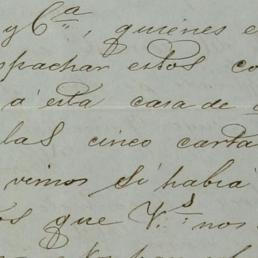 y Cª, quiénes e
spachar estos co
á esta casa de
las cinco carta
vimos si había
os que V.s nos